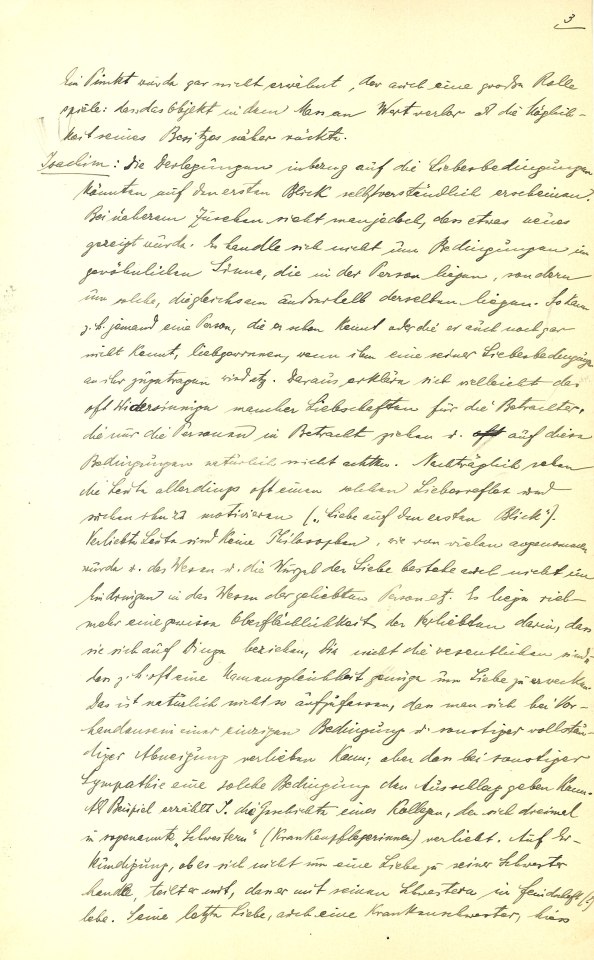 3
Ein Punkt wurde gar nicht erwähnt, der auch eine große Rolle
spiele: dass das Objekt in dem Mass an Wert verlor als die Möglich-
keit seines Besitzes näher rückte.
Joachim: Die Darlegungen inbezug auf die Liebesbedingungen
könnten auf den ersten Blick selbstverständlich erscheinen.
Bei näherem Zusehen sieht man jedoch, dass etwas neues
gezeigt wurde. Es handle sich nicht um Bedingungen im
gewöhnlichen Sinne, die in der Person liegen, sondern
um solche, die gleichsam ausserhalb derselben liegen. So kann
z.b. jemand eine Person, die er schon kennt oder die er auch noch gar
nicht kennt, liebgewinnen, wenn ihm eine seiner Liebesbedingungen
an ihr zugetragen wird etz. Daraus erkläre sich vielleicht das
oft Widersinnige mancher Liebschaften für die Betrachter,
die nur die Personen in Betracht ziehen u. auf diese
Bedingungen natürlich nicht achten. Nachträglich sehen
die Leute allerdings oft einen solchen Liebesreflex und
suchen ihn zu motivieren („Liebe auf den ersten Blick").
Verliebte Leute sind keine Philosophen, wie von vielen angenommen
würde u. das Wesen u. die Wurzel der Liebe bestehe auch nicht im
Eindringen in das Wesen der geliebten Person etz. Es liege viel-
mehr eine gewisse Oberflächlichkeit der Verliebten darin, dass
sie sich auf Dinge beziehen, die nicht die wesentlichen sind u.
dass z.b. oft eine Namensgleichheit genüge um Liebe zu erwecken.
Das ist natürlich nicht so aufzufassen, dass man sich bei Vor-
handensein einer einzigen Bedingung u. sonstiger vollstän-
diger Abneigung verlieben kann; aber dass bei sonstiger
Sympathie eine solche Bedingung den Ausschlag geben kann.
Als Beispiel erzählt J. die Geschichte eines Kollegen, der sich dreimal
in sogenannte „Schwestern" (Krankenpflegerinnen) verliebt. Auf Er-
kundigung, ob es sich nicht um eine Liebe zu seiner Schwester
handle, teilt er mit, dass er mit seinen Schwestern in Feindschaft (!)
lebe. Seine letzte Liebe, auch eine Krankenschwester, hiess